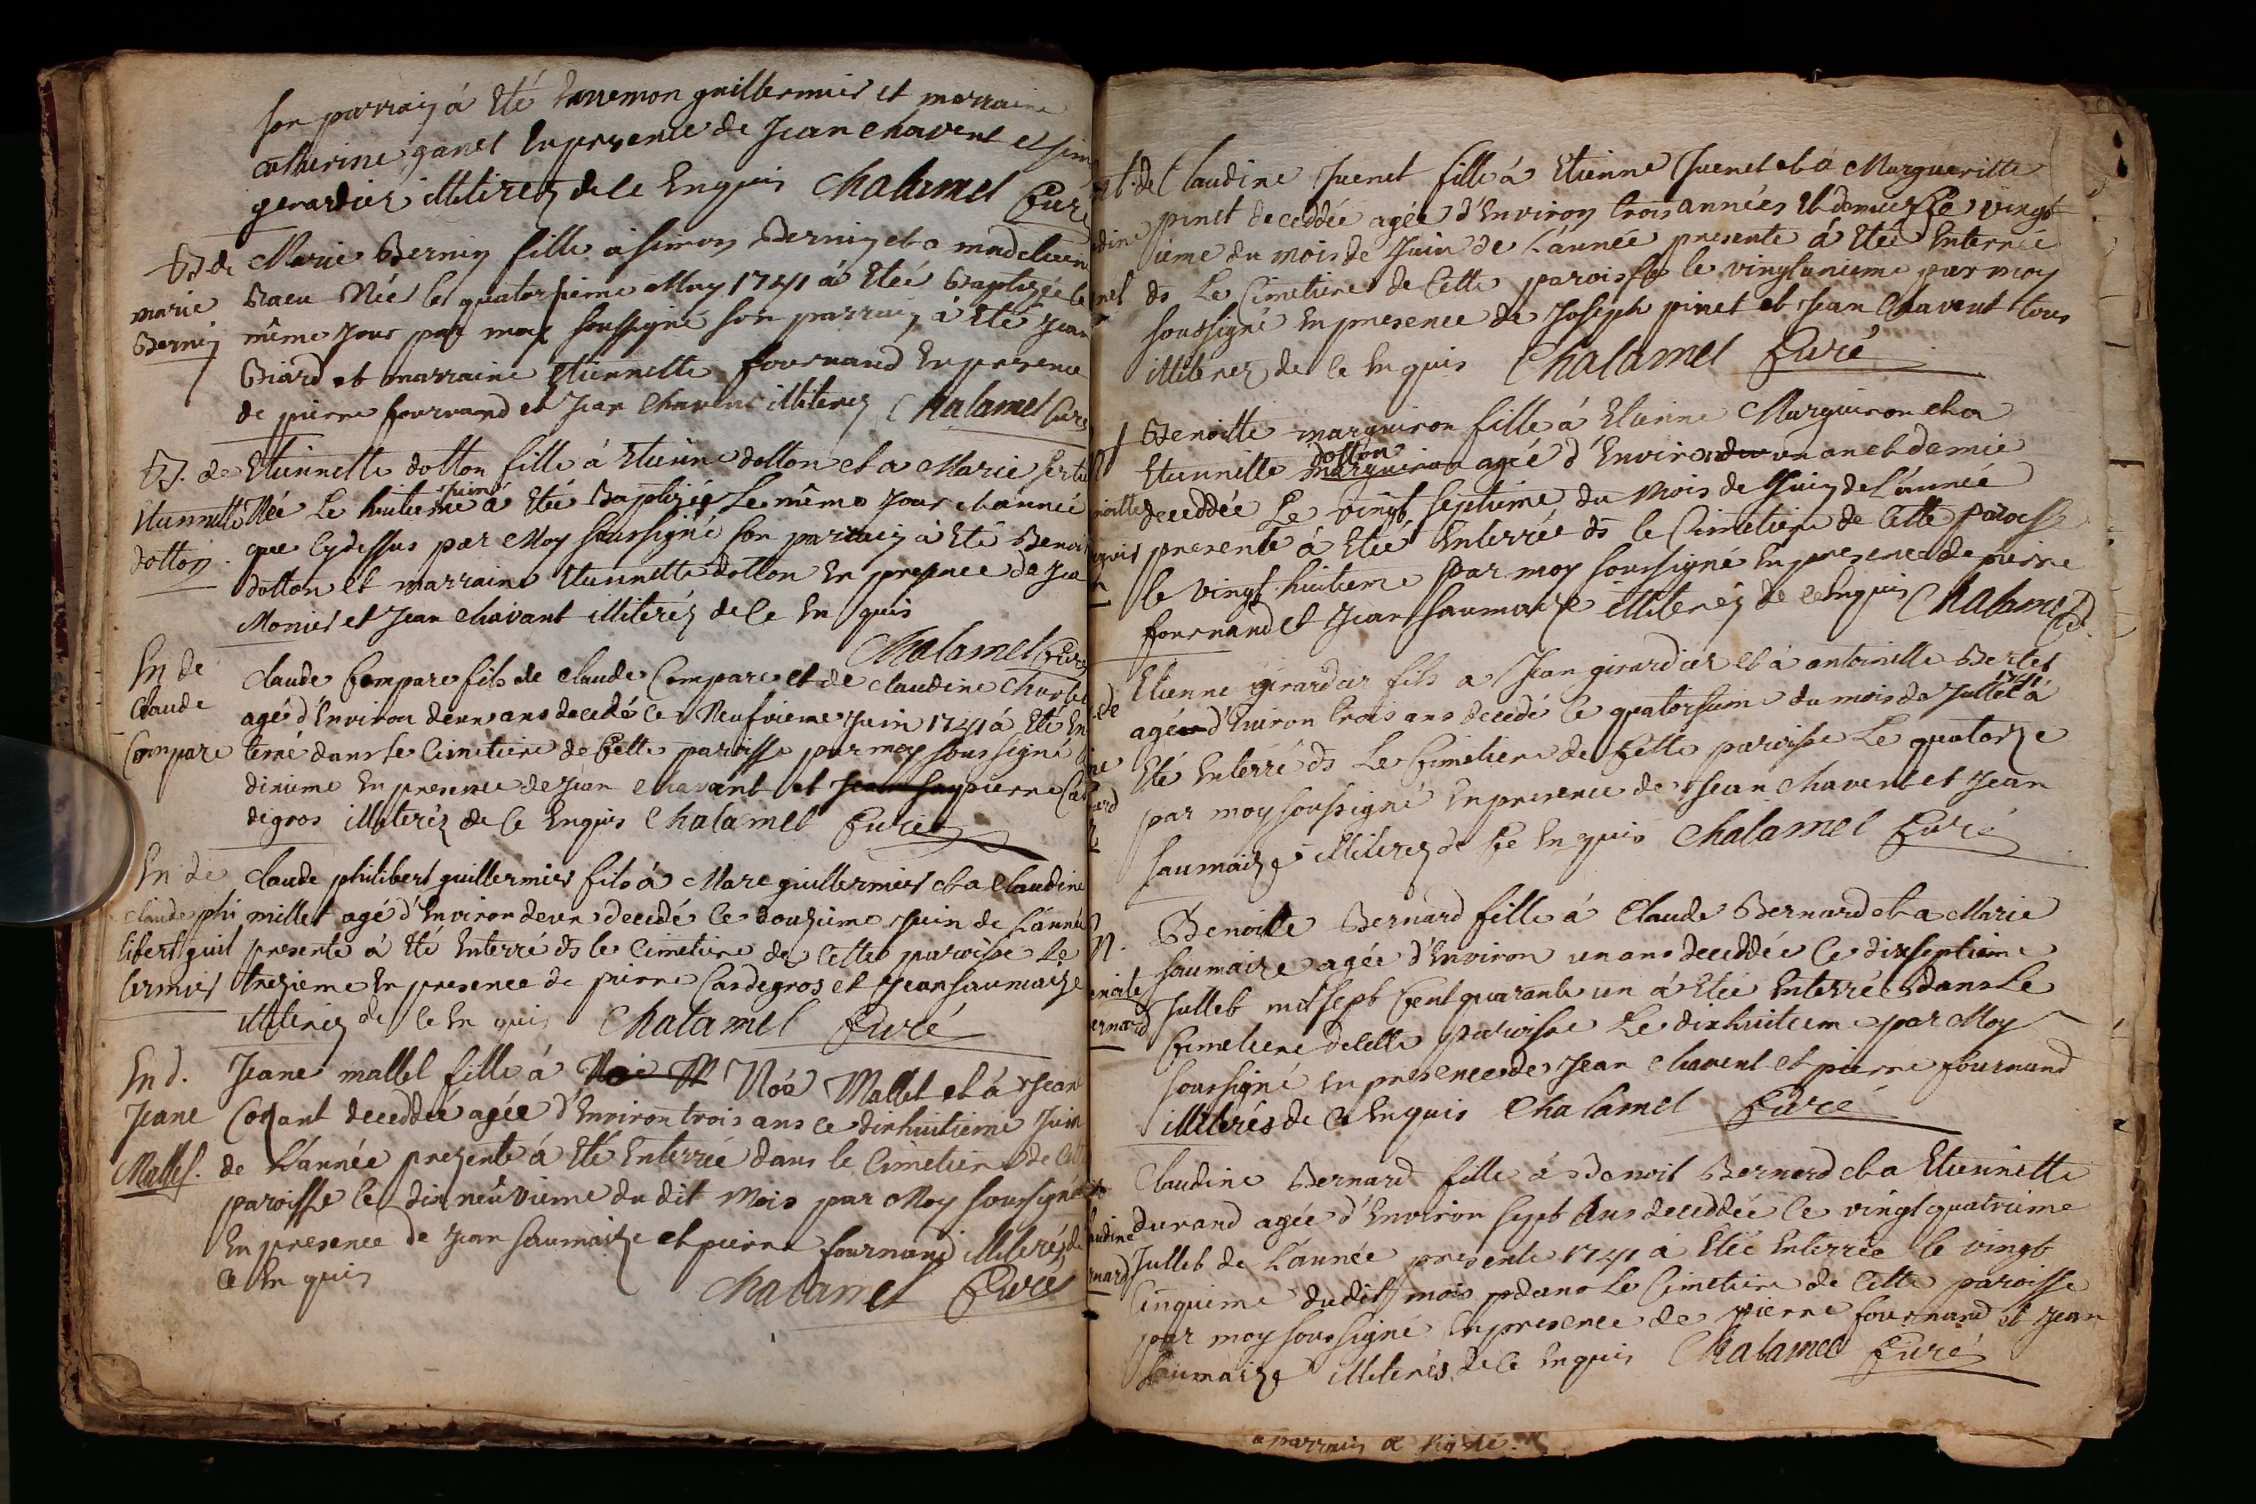 son parrain à Eté Ennemon guillermier et marraine
catherine ganet En presence de Jean chavent et sim
gerardier illiterez de ce Enquis Chalamel Curé
B. de
marie
Bernin
Marie Bernin fille à simon Bernin et a madeleine
Née le quatorsieme May 1741 à Eteé Baptizée le
même jour par moy soussigné son parrain à Eté Jean
Biard et marraine Etiennette fournand En presence
de pierre fournand et Jean Chavent illiterez Chalamel Curé
B. de
Etiennette
dotton
Etiennette dotton fille à Etienne dotton et a Marie
Née Le huitieme juin à Eté Baptizée Le même jour et année
que Cydessus par Moy soussigné son parrain à Eté Benoit
dotton et marraine Etiennette dotton En presence de Jea
Monier et Jean Chavant illiteréz de Ce En quis
Chalamel Curé
En de
Claude
Compare
Claude Compare fils de Claude Compare et de Claudine Charle
agé d'Environ deux ans decedé Ce Neufvieme Juin 1741 à Eté En
terré dans Le Cimetiere de Cette paroisse par moy soussigné
dixieme En presence de Jean Chavant et pierre Car
degros illiteréz de Ce Enquis Chalamel Curé
En de
Claude phi
libert guil
lermier
Claude philibert guillermier fils à Marc guillermier et a Claudine
millet agé d'Environ deux decedé Ce douzieme Juin de L'année
presente à Eté Enterré ds le Cimetiere de Cette paroisse Le
treizieme En presence de pierre Cardegros et Jean saumaize
illiterez de Ce En quis Chalamel Curé
En d.
Jeane
Mallet.
Jeane mallet fille à Noé Mallet et à Jeane
Conant deceddée agée d'Environ trois ans Ce dixhuitieme Juin
de L'année prezente à Eté Enterrée dans le Cimetiere de Cette
paroisse Le dixneuvieme du dit Mois par Moy soussigné
En presence de Jean saumaize et pierre fournand illiterés de
Ce En quis
Chalamel Curé
Claudine Juenet fille à Etienne Juenet et à Margueritte
pinet deceddée agée d'Environ trois années et demie Ce vingt
ieme du mois de Juin de L'année presente à Eteé Enterrée
ds Le Cimetiere de Cette paroisse le vingtunieme par moy
soussigné En presence de Joseph pinet et Jean Chavent tous
illiterez de Ce Enquis Chalamel Curé
Benoitte marguiron fille à Etienne Marguiron et a
Etiennette dotton agée d'Environ un an et demie
deceddée Le vingt septieme du Mois de Juin de L'année
presente à Eteé Enterrée ds le Cimetiere de Cette paroisse
le vingt huitieme par moy soussigné En presence de pierre
fournand et Jean saumaize illiterez de ce Enquis Chalamel
Etienne girardier fils a Jean girardier et à antoinette Berlet
agé d'Environ trois ans decedé Ce quatorsieme du mois de Juillet à
Eté Enterré ds Le Cimetiere de Cette paroisse Le quatorze
par moy soussigné En presence de Jean Chavent et Jean
saumaize illiterez de Ce Enquis Chalamel Curé
Benoitte Bernard fille à Claude Bernard et a Marie
saumaize agée d'Environ un ans deceddée Ce dixseptieme
Jullet mil sept Cent quarante un à Eteé Enterrée dans Le
Cimetiere de Cette paroisse Le dixhuitieme par Moy
soussigné En presence de Jean Chavent et pierre fournand
illiterés de Ce Enquis Chalamel Curé
Claudine Bernard fille à Benoit Bernard et a Etiennette
durand agée d'Environ sept ans deceddée Ce vingtquatrieme
Jullet de L'année presente 1741 à Eteé Enterrée le vingt
Cinquieme dudit mois dans Le Cimetiere de Cette paroisse
par moy soussigné En presence de pierre fournand et Jean
saumaize illiterés de Ce Enquis Chalamel Curé